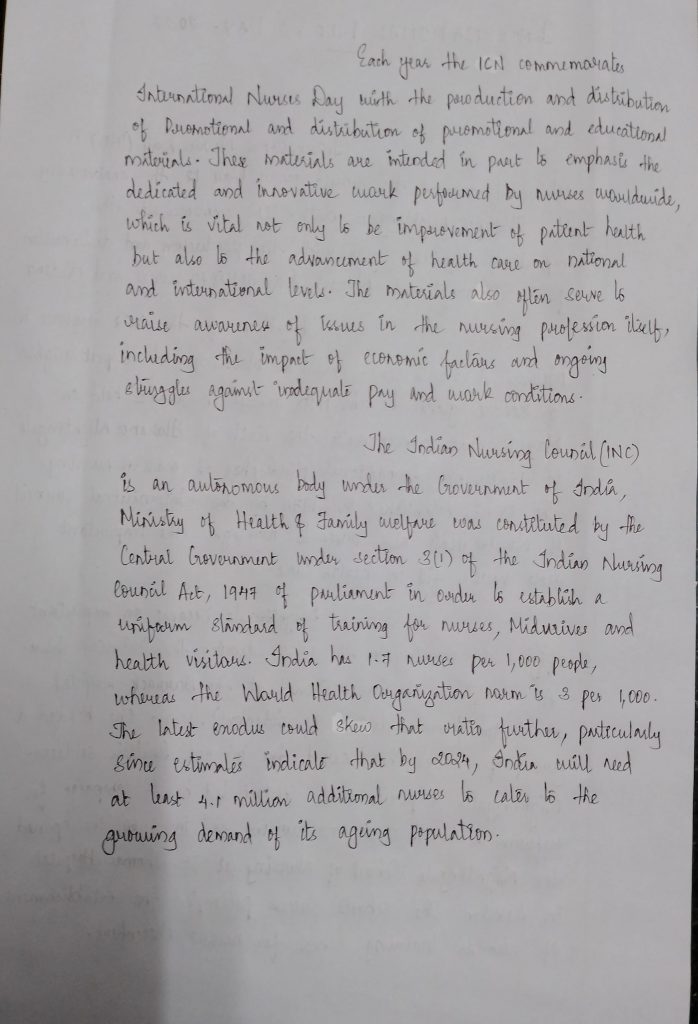 Each year the ICN commemorates
International Nurses Day with the production and distribution
of Promotional and distribution of promotional and educational
materials. These materials are intended in part to emphasis the
dedicated and innovative work performed by nurses worldwide,
which is vital not only to be improvement of patient health
but also to the advancement of health care on national
and international levels. The materials also often serve to
raise awareness of issues in the nursing profession itself,
including the impact of economic factors and ongoing
struggles against inadequate pay and work conditions.
The Indian Nursing Council (INC)
is an autonomous body under the Government of India,
Ministry of Health & Family welfare was constituted by the
Central Government under section 3(1) of the Indian Nursing
Council Act, 1947 of parliament in order to establish a
uniform standard of training for nurses, Midwives and
health visitors. India has 1.7 nurses per 1,000 people,
whereas the World Health Organization norm is 3 per 1,000.
The latest exodus could skew that ratio further, particularly
since estimates indicate that by 2024, India will need
at least 4.1 million additional nurses to cater to the
growing demand of its ageing population.